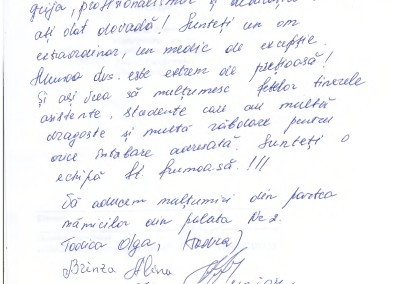 grija, profesionalismul și
ați dat dovadă! Sunteți un om
extraordinar, un medic de excepție.
Munca dvs. este extrem de prețioasă!
Și aș vrea să mulțumesc fetelor tinerele
asistente, studente care au multă
dragoste și multă răbdare pentru
orice întrebare adresată. Sunteți o
echipă f. frumoasă.!!!
Vă aducem mulțumiri din partea
mămicilor din palata Nr. 2.
Todica Olga,
Brinza Alina